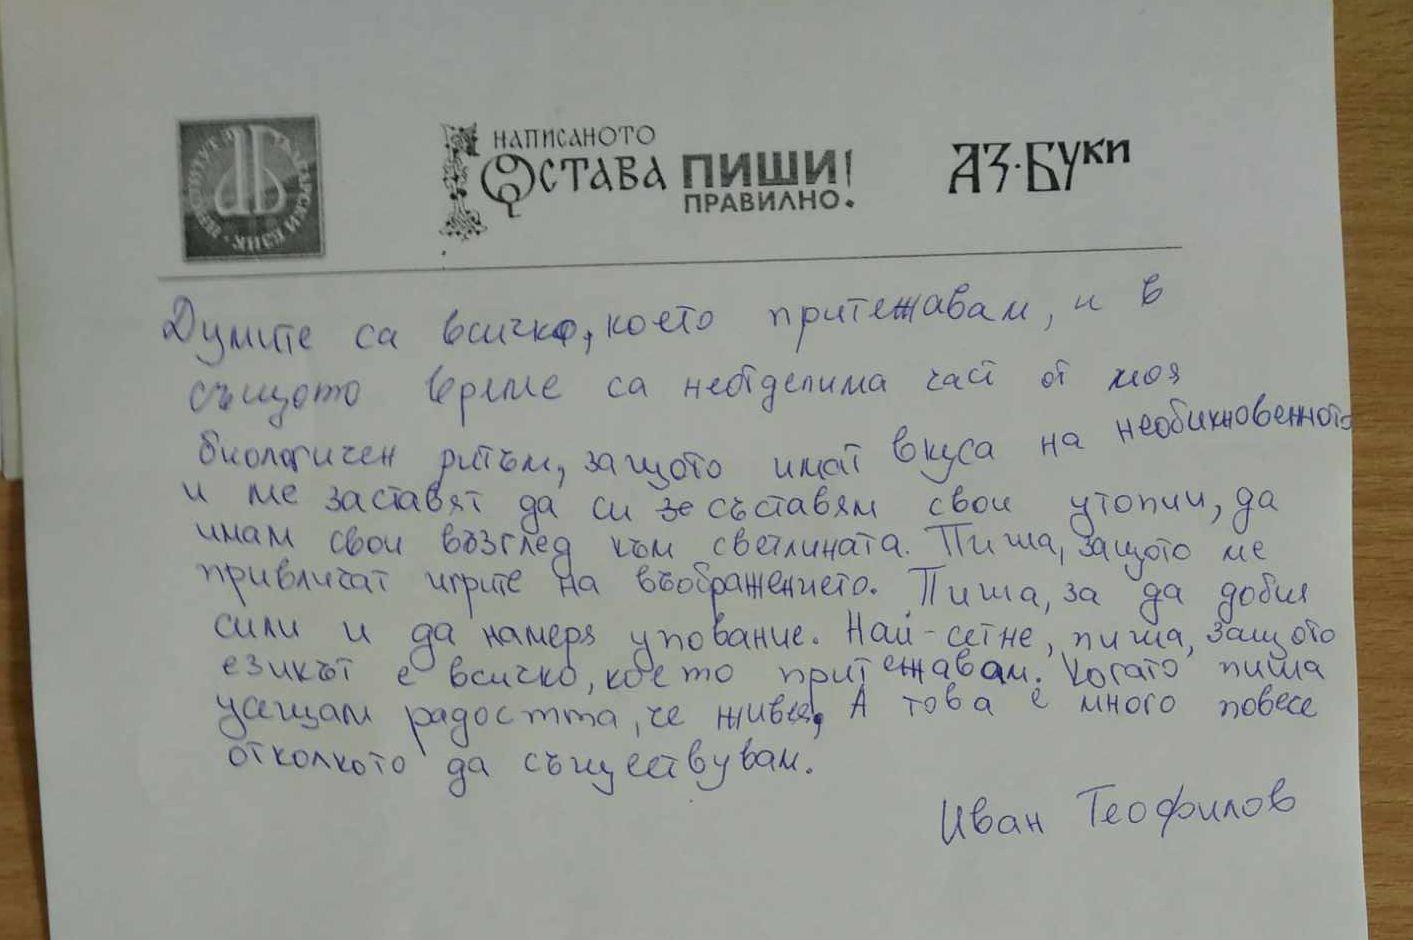 ИНСТИТУТ ЗА БЪЛГАРСКИ ЕЗИК
НАПИСАНОТО
ОСТАВА
ПИШИ!
ПРАВИЛНО.
АЗ·БУКИ
Думите са всичко, което притежавам, и в
същото време са неотделима част от моя
биологичен ритъм, защото имат вкуса на необикновенното
и ме заставят да си съставям свои утопии, да
имам свои възглед към светлината. Пиша, защото ме
привличат игрите на въображението. Пиша, за да добия
сили и да намеря упование. Най-сетне, пиша, защото
езикът е всичко, което притежавам. Когато пиша
усещам радостта, че живея, А това е много повече
отколкото да съществувам.
Иван Теофилов